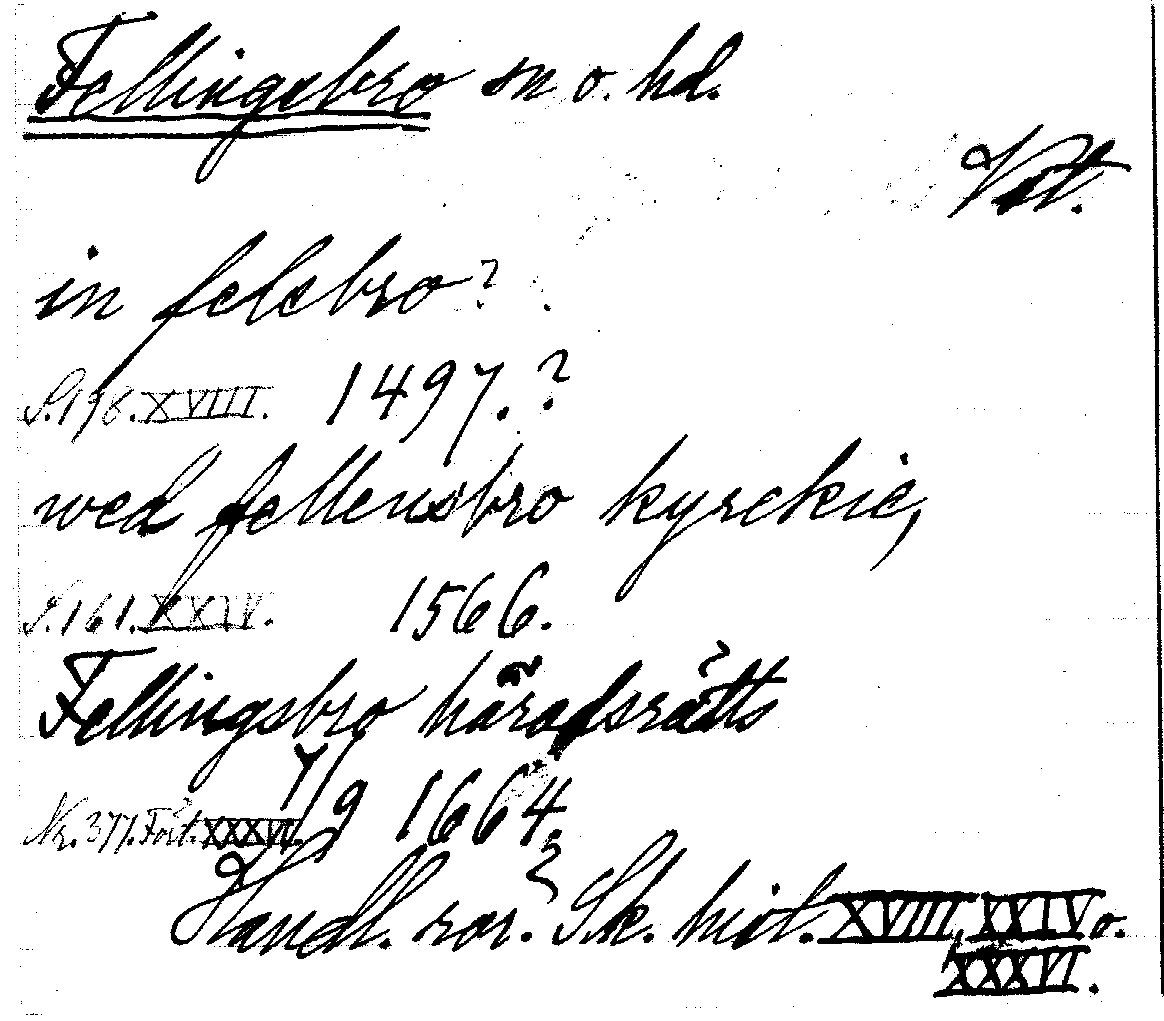 Fellingsbro sn o. hd.
Vstl.
in felsbro?
S. 198. XVIII. 1497.?
wed fellensbro kyrckie,
S. 161. XXIV. 1566.
Fellingsbro häradsrätts
Nr. 377. Fört. XXXVI. 7/9 1664.
Handl. rör. Sk. hist. XVIII, XXIV o.
XXXVI.